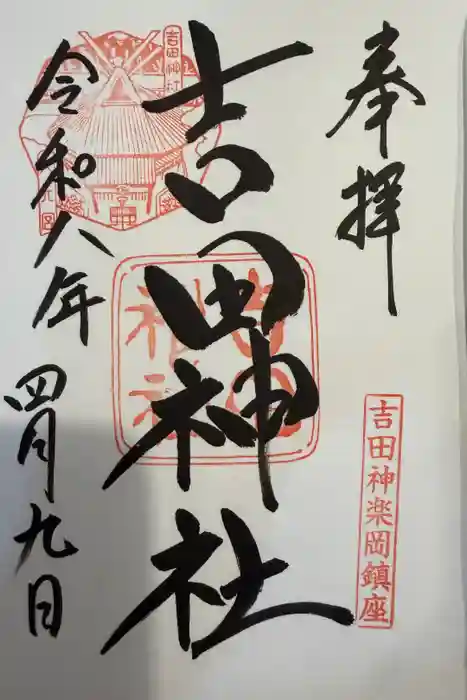 奉拝
吉田神楽岡鎮座
吉田神社
吉田神社
吉田神社
令和八年四月九日